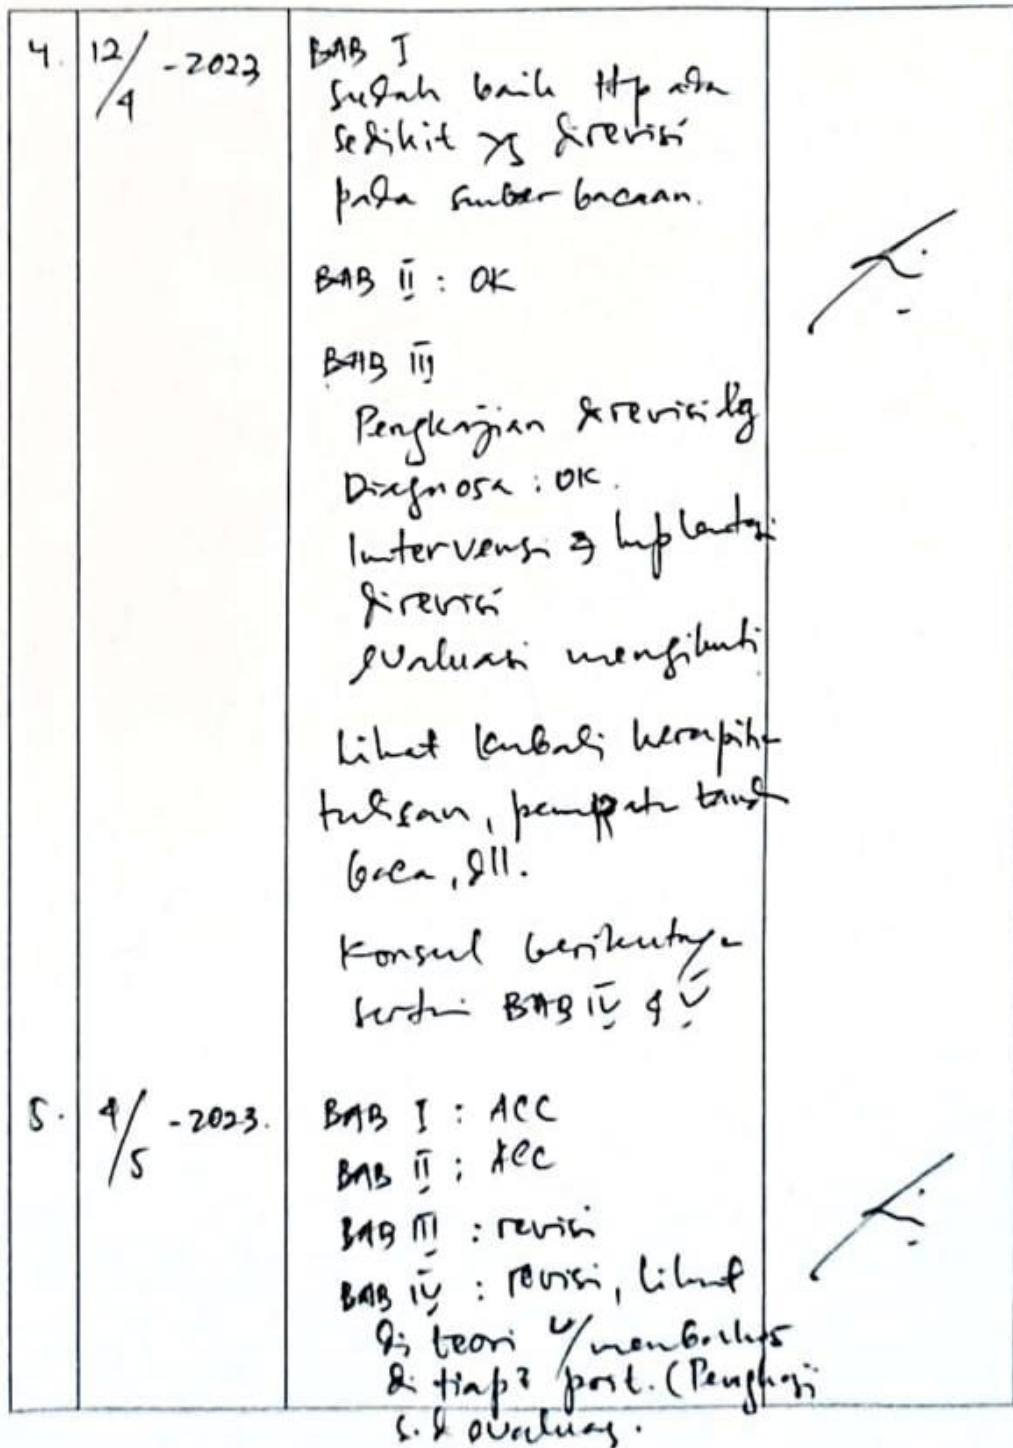 4. 12/4 -2023 BAB I
Sudah baik ttp ada
sedikit yg direvisi
pada sumber bacaan.
BAB II : OK
BAB III
Pengkajian direvisi lg
Diagnosa : OK.
Intervensi &
direvisi
evaluasi mengikuti
Lihat kembali kerapihan
tulisan, tanda
baca, dll.
Konsul berikutnya
BAB IV & V
5. 4/5 -2023. BAB I : ACC
BAB II : ACC
BAB III : revisi
BAB IV : revisi, lihat
di teori u/ membahas
di tiap2 point. (Pengkaji
s.d evaluasi.